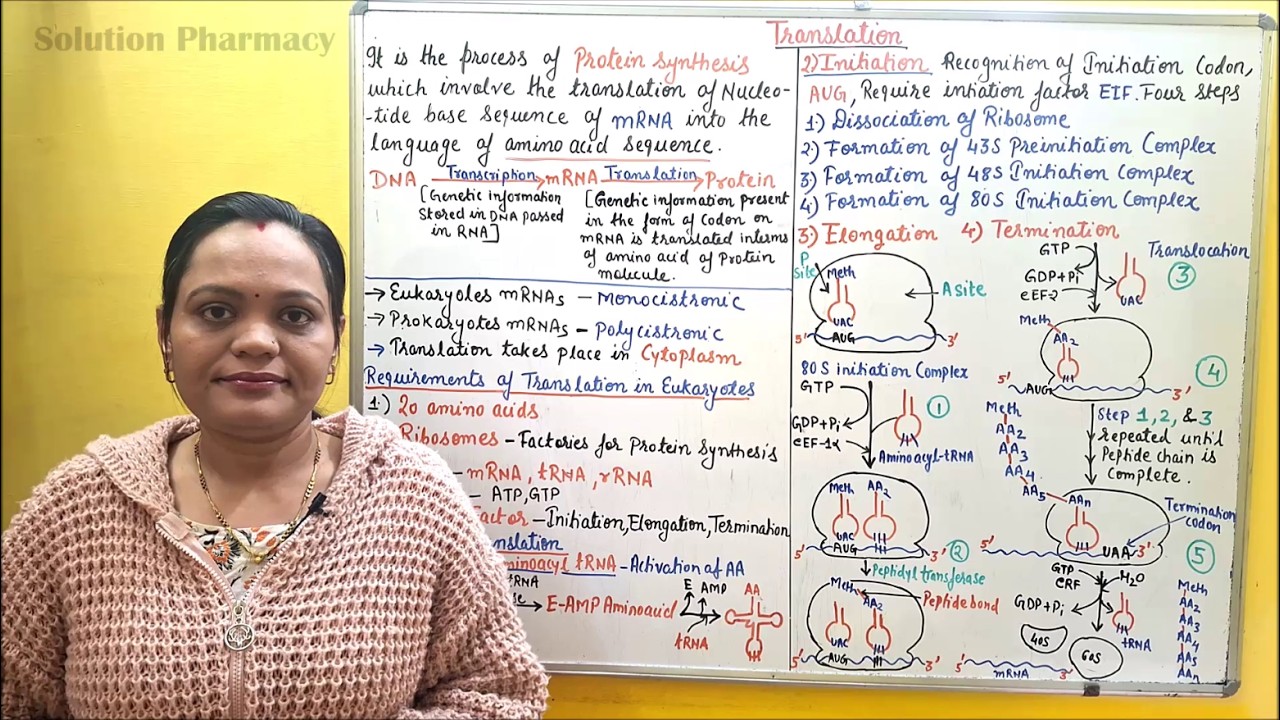 Solution Pharmacy
Translation
It is the process of Protein synthesis
which involve the translation of Nucleo-
-tide base sequence of mRNA into the
language of amino acid sequence.
DNA Transcription mRNA Translation Protein
[Genetic information
Stored in DNA passed
in RNA]
[Genetic information present
in the form of Codon on
mRNA is translated interms
of amino acid of Protein
molecule.
→ Eukaryotes mRNAs – Monocistronic
→ Prokaryotes mRNAs – Polycistronic
→ Translation takes place in Cytoplasm
Requirements of Translation in Eukaryotes
1.) 20 amino acids
Ribosomes – Factories for Protein synthesis
– mRNA, tRNA, rRNA
– ATP, GTP
Factor – Initiation, Elongation, Termination
nslation
minoacyl tRNA – Activation of AA
tRNA
E-AMP Aminoacid
E AMP
tRNA
AA
2) Initiation Recognition of Initiation Codon,
AUG, Require intiation factor EIF. Four steps
1.) Dissociation of Ribosome
2.) Formation of 43S Preinitiation Complex
3.) Formation of 48S Initiation Complex
4.) Formation of 80S Initiation Complex
3.) Elongation 4.) Termination
P
site
Meth
A site
UAC
5' AUG 3'
80S initiation Complex
GTP
GDP+Pi
eEF-1α
1
Aminoacyl-tRNA
Meth AA2
UAC
5' AUG 3'
2
Peptidyl transferase
Meth
AA2
Peptide bond
UAC
5' AUG 3'
GTP
GDP+Pi
eEF-2
UAC
Translocation
3
Meth
AA2
5' AUG 3'
4
Step 1, 2, & 3
repeated until
Peptide chain is
Complete.
Meth
AA2
AA3
AA4
AA5
AAn
Termination
codon
5' UAA 3'
5
GTP
eRF
H2O
GDP+Pi
tRNA
40S
60S
5' mRNA 3'
Meth
AA2
AA3
AA4
AA5
AAn